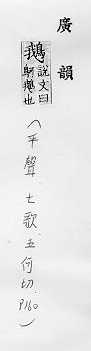 廣韻
鵝 說文曰
鵝也
(平聲 七歌 五何切 P160)